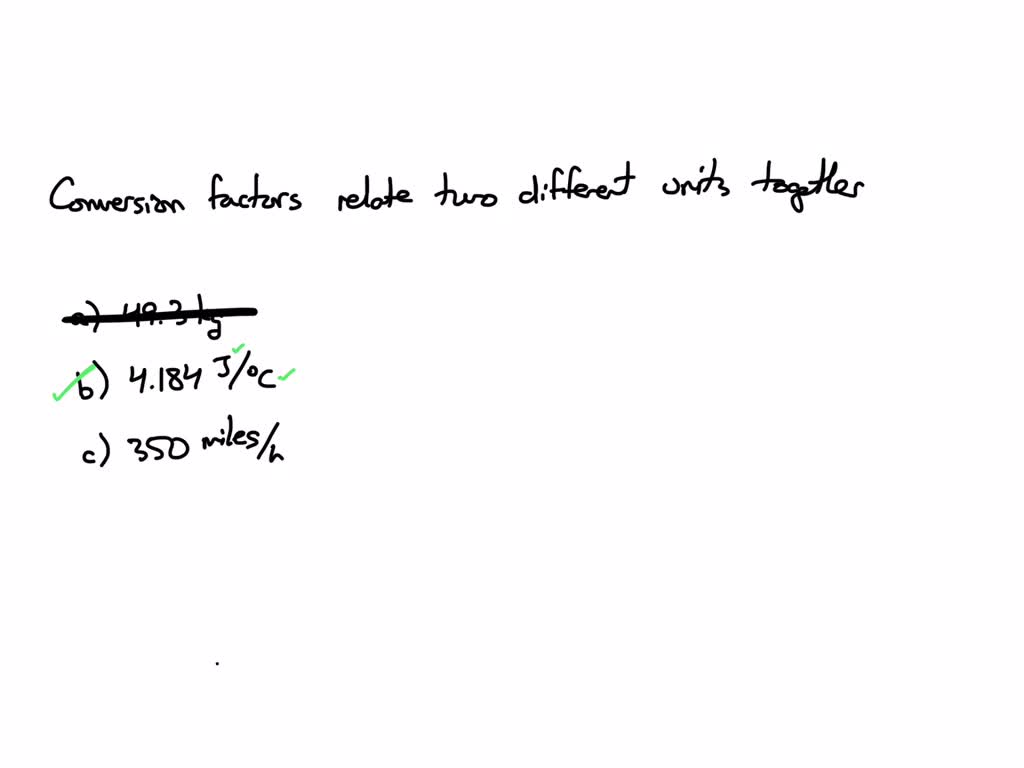 Conversion factors relate two different units together
a) 49.3 kg
b) 4.184 J/°C
c) 350 miles/h